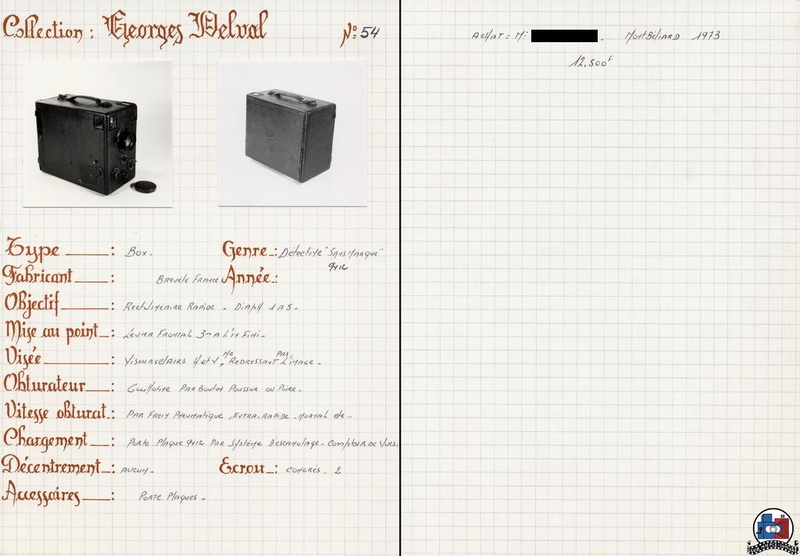 Collection : Georges Delval
N°: 54
Type : Box.
Genre : Détective "Sans Marque" 9x12
Fabricant : Breveté France
Année :
Objectif : Rectilinéaire Rapide - Diaph 1 à 5 -
Mise au point : Levier Frontal 3m à l'infini -
Visée : Viseurs clairs H et V, Ne Redressant Pas l'image -
Obturateur : Guillotine Par Bouton Poussoir ou Poire -
Vitesse obturat. : Par Frein Pneumatique, Extra-Rapide - Normal etc -
Chargement : Porte Plaque 9x12 Par Système - Compteur de Vues.
Décentrement : Aucun -
Ecrou : Congrès. 2
Accessoires : Porte Plaques -
Achat : Mr . Montbéliard 1973
12.500F